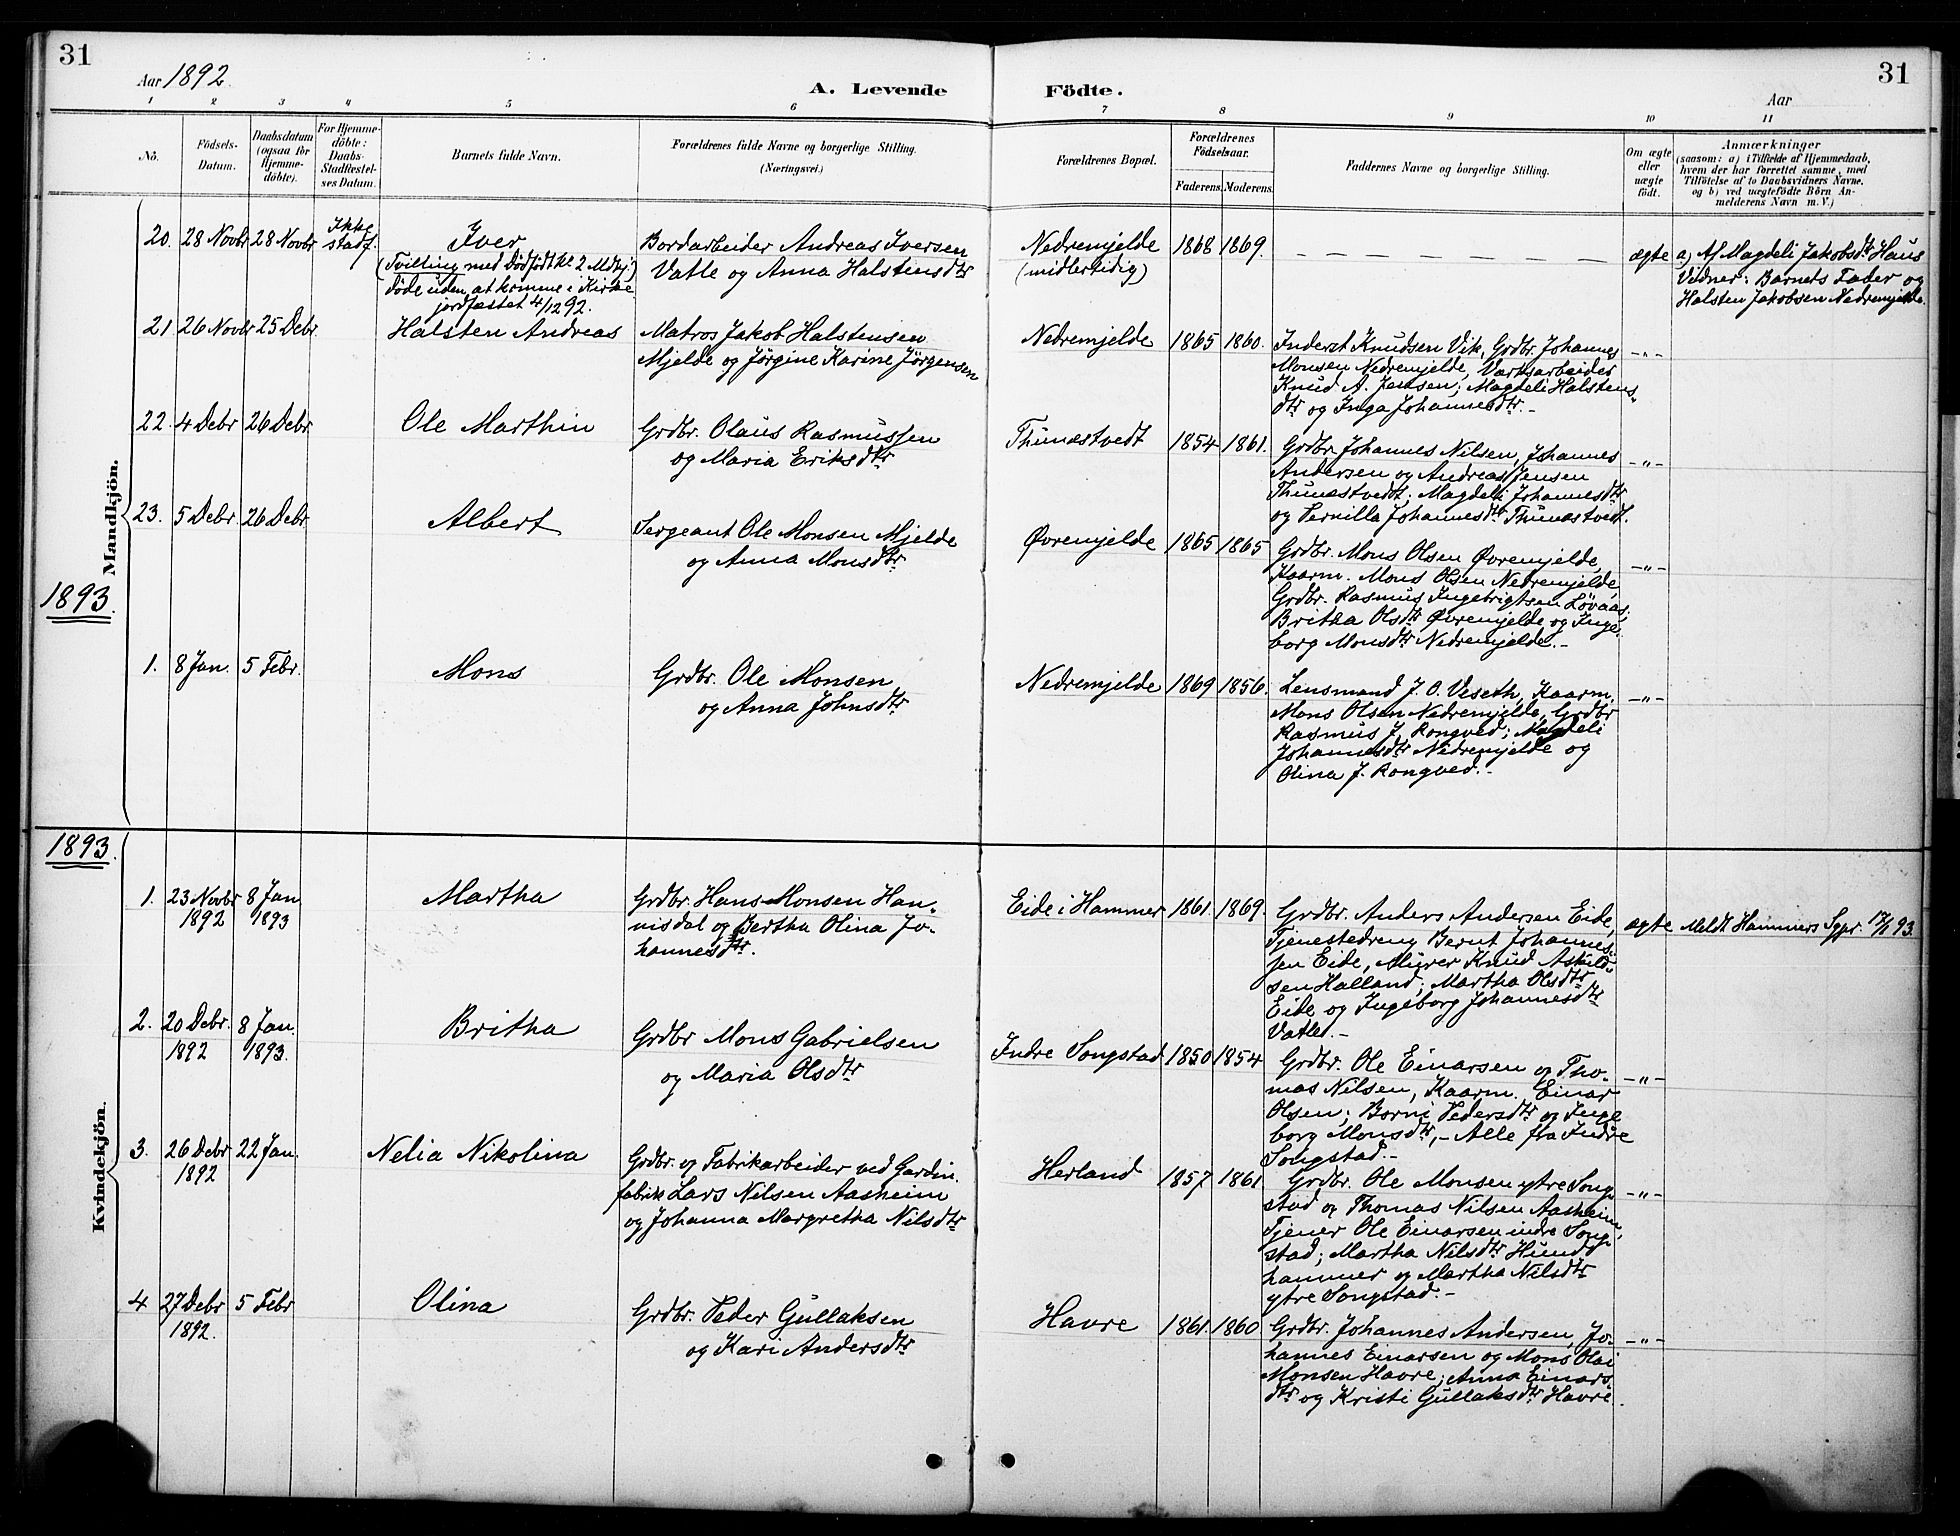 31
Aar 1892.
A. Levende Födte.
Aar
31
1 2 3 4 5 6 7 8 9 10 11
No.
Födsels-
Datum.
Daabsdatum
(ogsaa for
Hjemme-
döbte).
For Hjemme-
döbte:
Daabs-
Stadfæstel-
ses Datum.
Barnets fulde Navn.
Forældrenes fulde Navne og borgerlige Stilling.
(Næringsvei.)
Forældrenes Bopæl.
Forældrenes
Födselsaar.
Faderens. Moderens.
Faddernes Navne og borgerlige Stilling.
Om ægte
eller
uægte
födt.
Anmærkninger
(saasom: a) i Tilfælde af Hjemmedaab,
hvem der har forrettet samme, med
Tilföielse af to Daabsvidners Navne,
og b) ved uægtefödte Börn An-
melderens Navn m. V.)
Mandkjön.
20. 28 Novbr 28 Novbr
Ikke
stadf.
Iver
(Tvilling med Dødfødt No 2 Mdkj.)
Døde uden at komme i Kirke
jordfæstet 4/12 92.
Bordarbeider Andreas Iversen
Vatle og Anna Halstensdtr
Nedremjelde
(midlertidig)
1868 1869.
— — — — — — — —
ægte
a) Af Magdeli Jakobsdtr Haus
Vidner: Barnets Fader og
Halsten Jakobsen Nedremjelde.
21. 26 Novbr 25 Debr.
Halsten Andreas
Matros Jakob Halstensen
Mjelde og Jørgine Karine Jørgensen
Nedremjelde
1865 1860.
Inderst Knudsen Vik, Grdbr. Johannes
Monsen Nedremjelde, Værksarbeider
Knud A. Jensen; Magdeli Halstens-
dtr og Inga Johannesdtr.-
-"-
22. 4 Debr 26 Debr.
Ole Marthin
Grdbr. Olaus Rasmussen
og Maria Eriksdtr
Thunæstvedt
1854 1861.
Grdbr. Johannes Nilsen, Johannes
Andersen og Andreas Jensen
Thunæstvedt; Magdeli Johannesdtr
og Pernilla Johannesdtr Thunæstvedt.
-"-
23. 5 Debr 26 Debr.
Albert
Sergeant Ole Monsen Mjelde
og Anna Monsdtr
Øvremjelde
1865 1865
Grdbr. Mons Olsen Øvremjelde,
Kaarm. Mons Olsen Nedremjelde,
Grdbr. Rasmus Ingebrigtsen Løvaas;
Britha Olsdtr Øvremjelde og Inge-
borg Monsdtr Nedremjelde.-
-"-
1893.
1. 8 Jan. 5 Febr.
Mons
Grdbr. Ole Monsen
og Anna Johnsdtr
Nedremjelde
1869 1856.
Lensmand J. O. Veseth, Kaarm.
Mons Olsen Nedremjelde, Grdbr
Rasmus J. Rongved; Magdeli
Johannesdtr Nedremjelde og
Olina J. Rongved.-
-"-
1893.
Kvindekjön.
1. 23 Novbr
1892
8 Jan
1893
Martha
Grdbr. Hans Monsen Han-
nisdal og Bertha Olina Jo-
hannesdtr.
Eide i Hammer
1861. 1869.
Grdbr. Anders Andersen Eide,
Tjenestedreng Bernt Johannes-
sen Eide, Murer Knud Askild-
sen Halland; Martha Olsdtr
Eide og Ingeborg Johannesdtr
Vatle.-
ægte
Meldt Hammers Sgpr. 17/1 93.
2. 20 Debr.
1892
8 Jan.
1893.
Britha
Grdbr Mons Gabrielsen
og Maria Olsdtr
Indre Songstad
1850 1854
Grdbr. Ole Einarsen og Tho-
mas Nilsen, Kaarm. Einar
Olsen; Borni Pedersdtr og Inge-
borg Monsdtr,- Alle fra Indre
Songstad.-
-"-
3. 26 Debr
1892
22 Jan.
Nelia Nikolina
Grdbr. og Fabrikarbeider ved Gardin-
fabrik Lars Nilsen Aasheim
og Johanna Margretha Nilsdtr
Herland
1857 1861
Grdbr. Ole Monsen ytre Song-
stad og Thomas Nilsen Aasheim,
Tjener Ole Einarsen indre Song-
stad; Martha Nilsdtr Hunds-
hammer og Martha Nilsdtr
ytre Songstad.-
-"-
4 27 Debr
1892.
5 Febr
Olina
Grdbr. Peder Gullaksen
og Kari Andersdtr
Havre
1861. 1860
Grdbr. Johannes Andersen, Jo-
hannes Einarsen og Mons Olai
Monsen Havre; Anna Einars-
dtr og Kristi Gullaksdtr Havre.
-"-